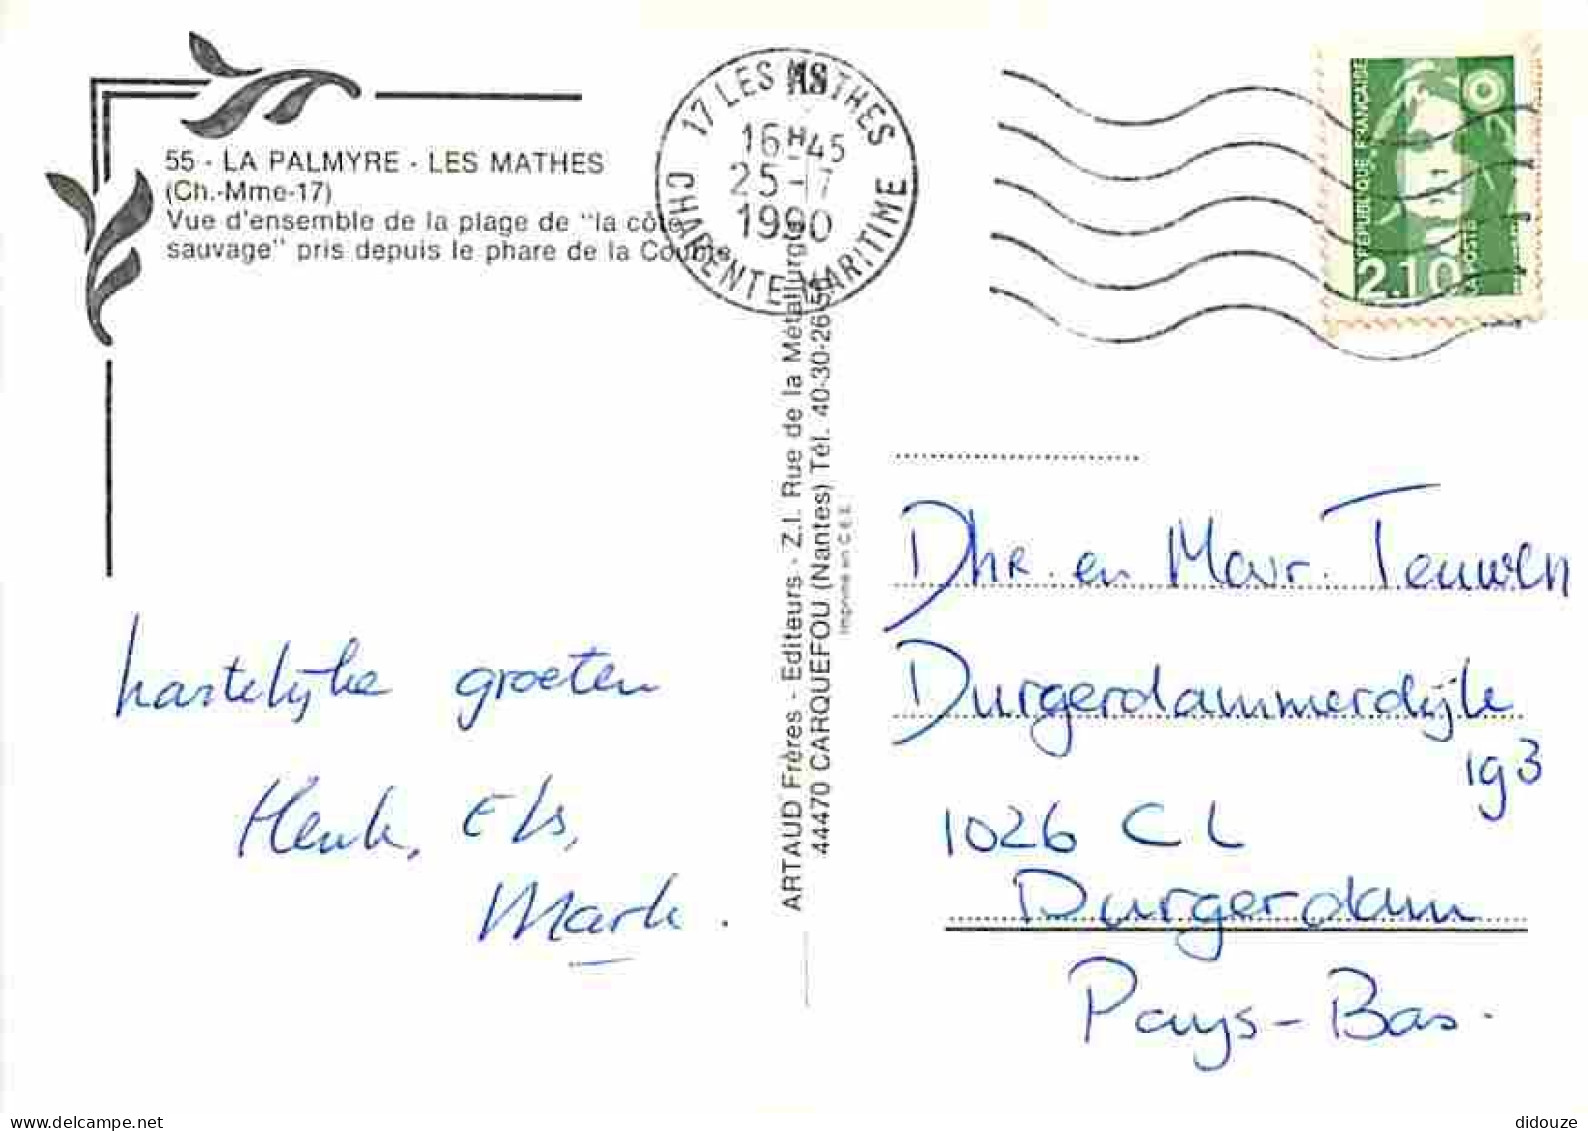 55 - LA PALMYRE - LES MATHES
(Ch.-Mme-17)
Vue d'ensemble de la plage de "la côte
sauvage" pris depuis le phare de la Coubre
17 LES MATHES
16H45
25-7
1990
CHARENTE MARITIME
REPUBLIQUE FRANÇAISE
2.10
LA POSTE
ARTAUD Frères - Editeurs - Z.I. Rue de la Métallurgie
44470 CARQUEFOU (Nantes) Tél. 40-30-26-50
Imprimé en C.E.E.
hartelijke groeten
Henk, Els,
Mark.
Dhr. en Mevr. Teuwen
Durgerdammerdijk
193
1026 CL
Durgerdam
Pays-Bas.
didouze